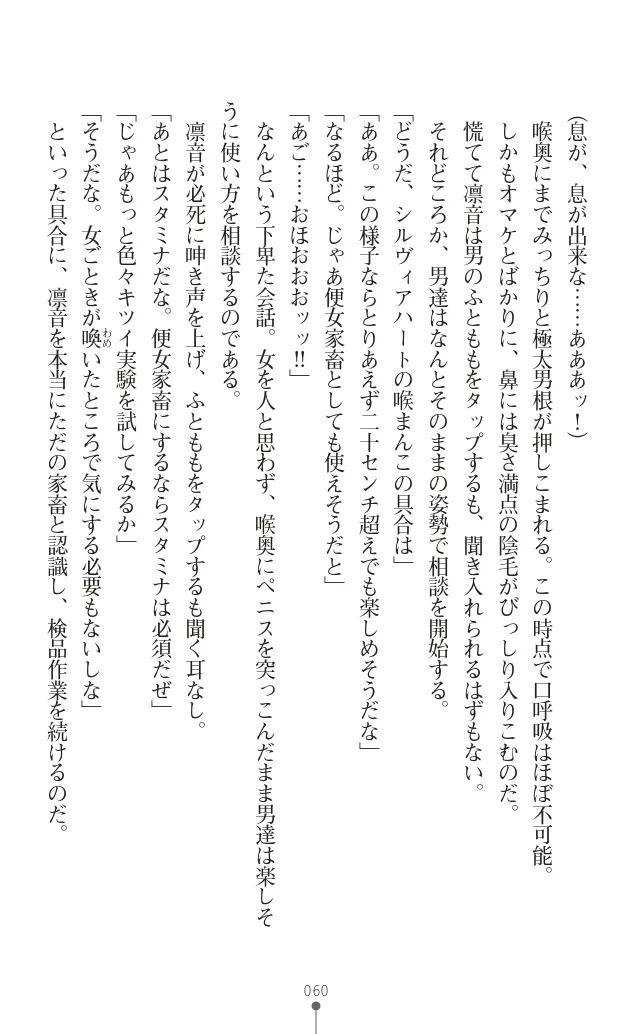 (息が、息が出来な……あああッ！)
喉奥にまでみっちりと極太男根が押しこまれる。この時点で口呼吸はほぼ不可能。
しかもオマケとばかりに、鼻には臭さ満点の陰毛がびっしり入りこむのだ。
慌てて凛音は男のふとももをタップするも、聞き入れられるはずもない。
それどころか、男達はなんとそのままの姿勢で相談を開始する。
「どうだ、シルヴィアハートの喉まんこの具合は」
「ああ。この様子ならとりあえず二十センチ超えでも楽しめそうだな」
「なるほど。じゃあ便女家畜としても使えそうだと」
「あご……おほおおおッッ!!」
なんという下卑た会話。女を人と思わず、喉奥にペニスを突っこんだまま男達は楽しそ
うに使い方を相談するのである。
凛音が必死に呻き声を上げ、ふとももをタップするも聞く耳なし。
「あとはスタミナだな。便女家畜にするならスタミナは必須だぜ」
「じゃあもっと色々キツイ実験を試してみるか」
「そうだな。女ごときが喚わめいたところで気にする必要もないしな」
といった具合に、凛音を本当にただの家畜と認識し、検品作業を続けるのだ。
060